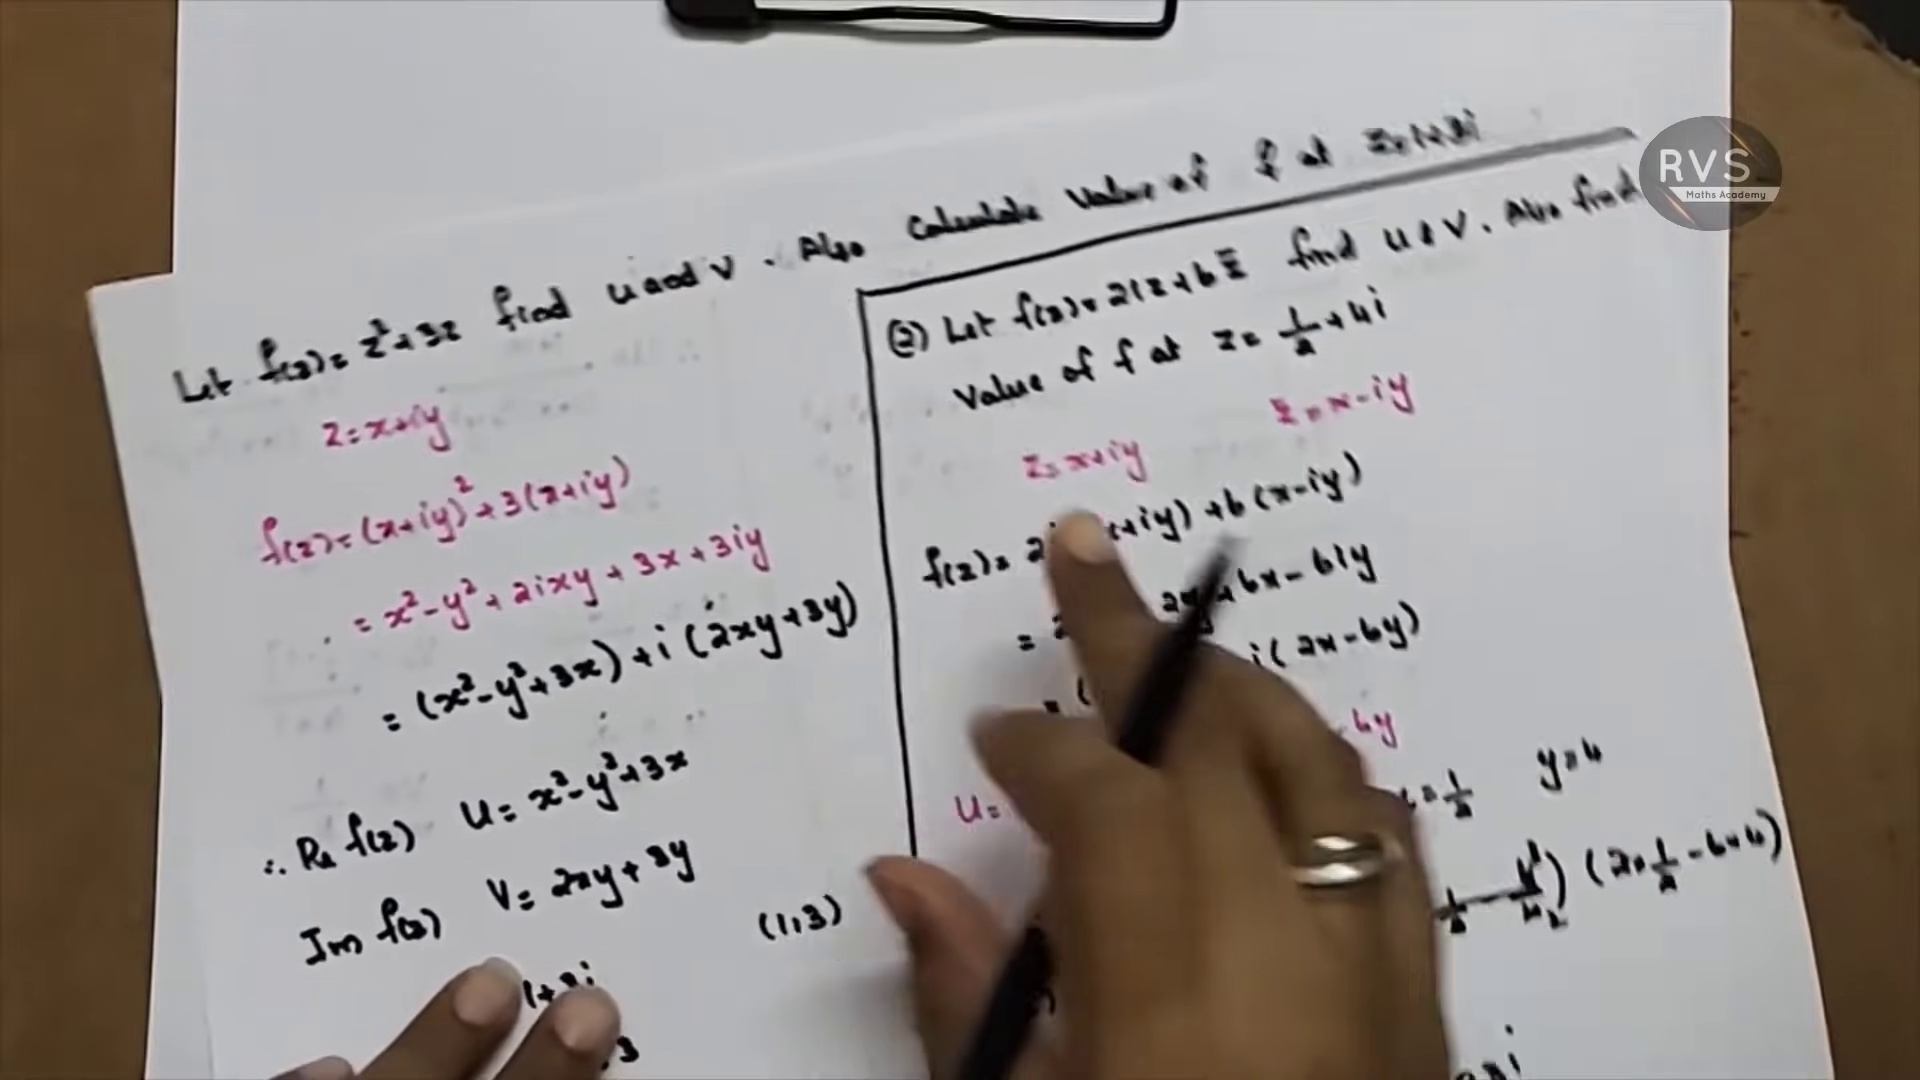 Let f(z) = z² + 3z find u and v . Also Calculate Value of f at z = 1+3i
z = x+iy
f(z) = (x+iy)² + 3(x+iy)
= x² - y² + 2ixy + 3x + 3iy
= (x² - y² + 3x) + i (2xy + 3y)
∴ Re f(z) u = x² - y² + 3x
Im f(z) v = 2xy + 3y
(1,3)
1+3i
3
(2) Let f(z) = 2iz + 6z̅ find u & v . Also find
Value of f at z = 1/2 + 4i
z = x+iy z̅ = x-iy
f(z) = 2 +iy) + 6 (x-iy)
= 2 2y + 6x - 6iy
= ( i( 2x - 6y)
6y
u =
= 1/2 y = 4
(2×1/2 - 6×4)
i
RVS
Maths Academy